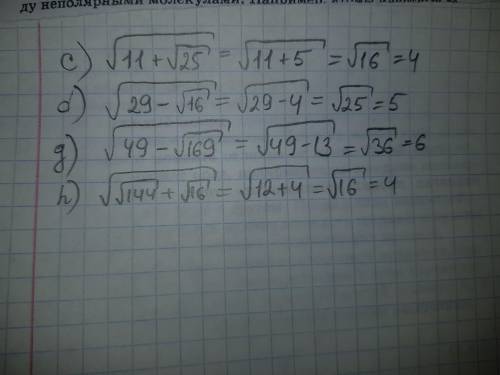 ду неполярными молекулами.
c) √(11+√25) = √(11+5) = √16 = 4
d) √(29-√16) = √(29-4) = √25 = 5
g) √(49-√169) = √(49-13) = √36 = 6
h) √(√144+√16) = √(12+4) = √16 = 4